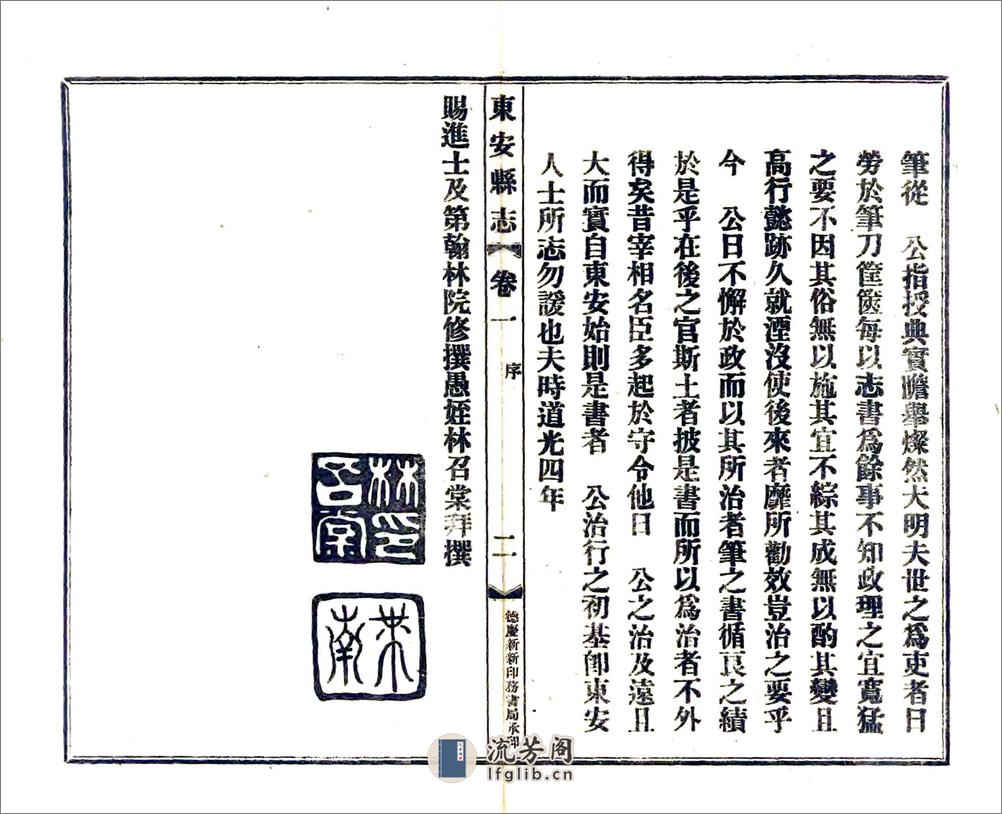 筆從　公指授典實瞻舉燦然大明夫世之爲吏者日
勞於筆刀筐篋每以志書爲餘事不知政理之宜寬猛
之要不因其俗無以施其宜不綜其成無以酌其變且
高行懿跡久就湮沒使後來者靡所勸效豈治之要乎
今　公日不懈於政而以其所治者筆之書循良之績
於是乎在後之官斯土者披是書而所以爲治者不外
得矣昔宰相名臣多起於守令他日　公之治及遠且
大而實自東安始則是書者　公治行之初基卽東安
人士所志勿諼也夫時道光四年
東安縣志　卷一　序　二　德慶新新印務書局承印
賜進士及第翰林院修撰愚姪林召棠拜撰
林召棠印
芾南
流芳阁
lfglib.cn